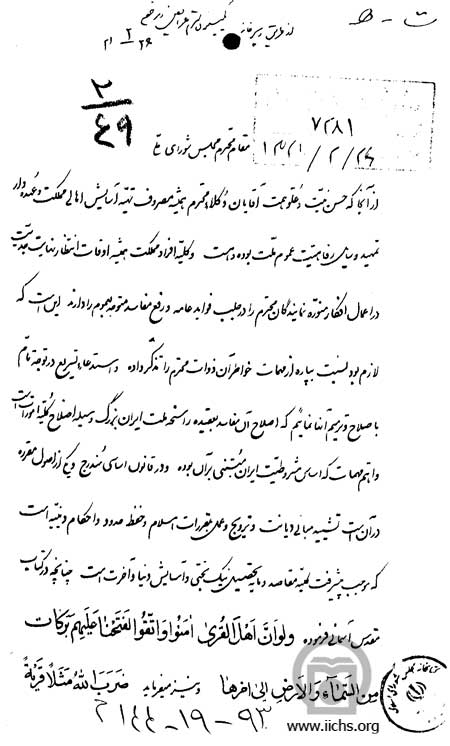 ت - ط
۲۹ / ۲ / ۲۱
۲ / ۴۹
۷۲۸۱
مقام محترم مجلس شورای ملی ۱۳۲۱ / ۲ / ۲۷
از آنجا که حسن نیت و علو همت آقایان وکلاء محترم همیشه مصروف تهیه آسایش اهالی مملکت و عهده دار
تمهید وسایل رفاهیت عموم ملت بوده است و کلیه افراد مملکت همیشه اوقات انتظار نهایت جدیت
در اعمال افکار منوره نمایندگان محترم را در جلب فواید عامه و رفع مفاسد متوجه بعموم را دارند این است که
لازم بود نسبت بپاره از مهمات خواطر آن ذوات محترم را تذکر داده و استدعاء تسریع در توجه تام
باصلاح و ترمیم آنها نمائیم که اصلاح آن مفاسد بعقیده راسخه ملت ایران بزرگ وسیله اصلاح کلیه امورات است
و اهم مهمات که اساس مشروطیت ایران مبتنی بر آن بوده و در قانون اساسی مندرج و یکی از اصول مقرره
در آن است تشیید مبانی دیانت و ترویج و عمل بمقررات اسلام و حفظ حدود و احکام دینیه است
که موجب پیشرفت کلیه مقاصد و مایه تحصیل نیک بختی و آسایش دنیا و آخرت است چنانچه در کتاب
مقدس آسمانی فرموده ولو ان اهل القری امنوا واتقوا لفتحنا علیهم برکات
من السماء والارض الی اخرها و نیز میفرماید ضرب الله مثلا قریة
۹۳ - ۱۹ - ۲۱۴۴
www.iichs.org